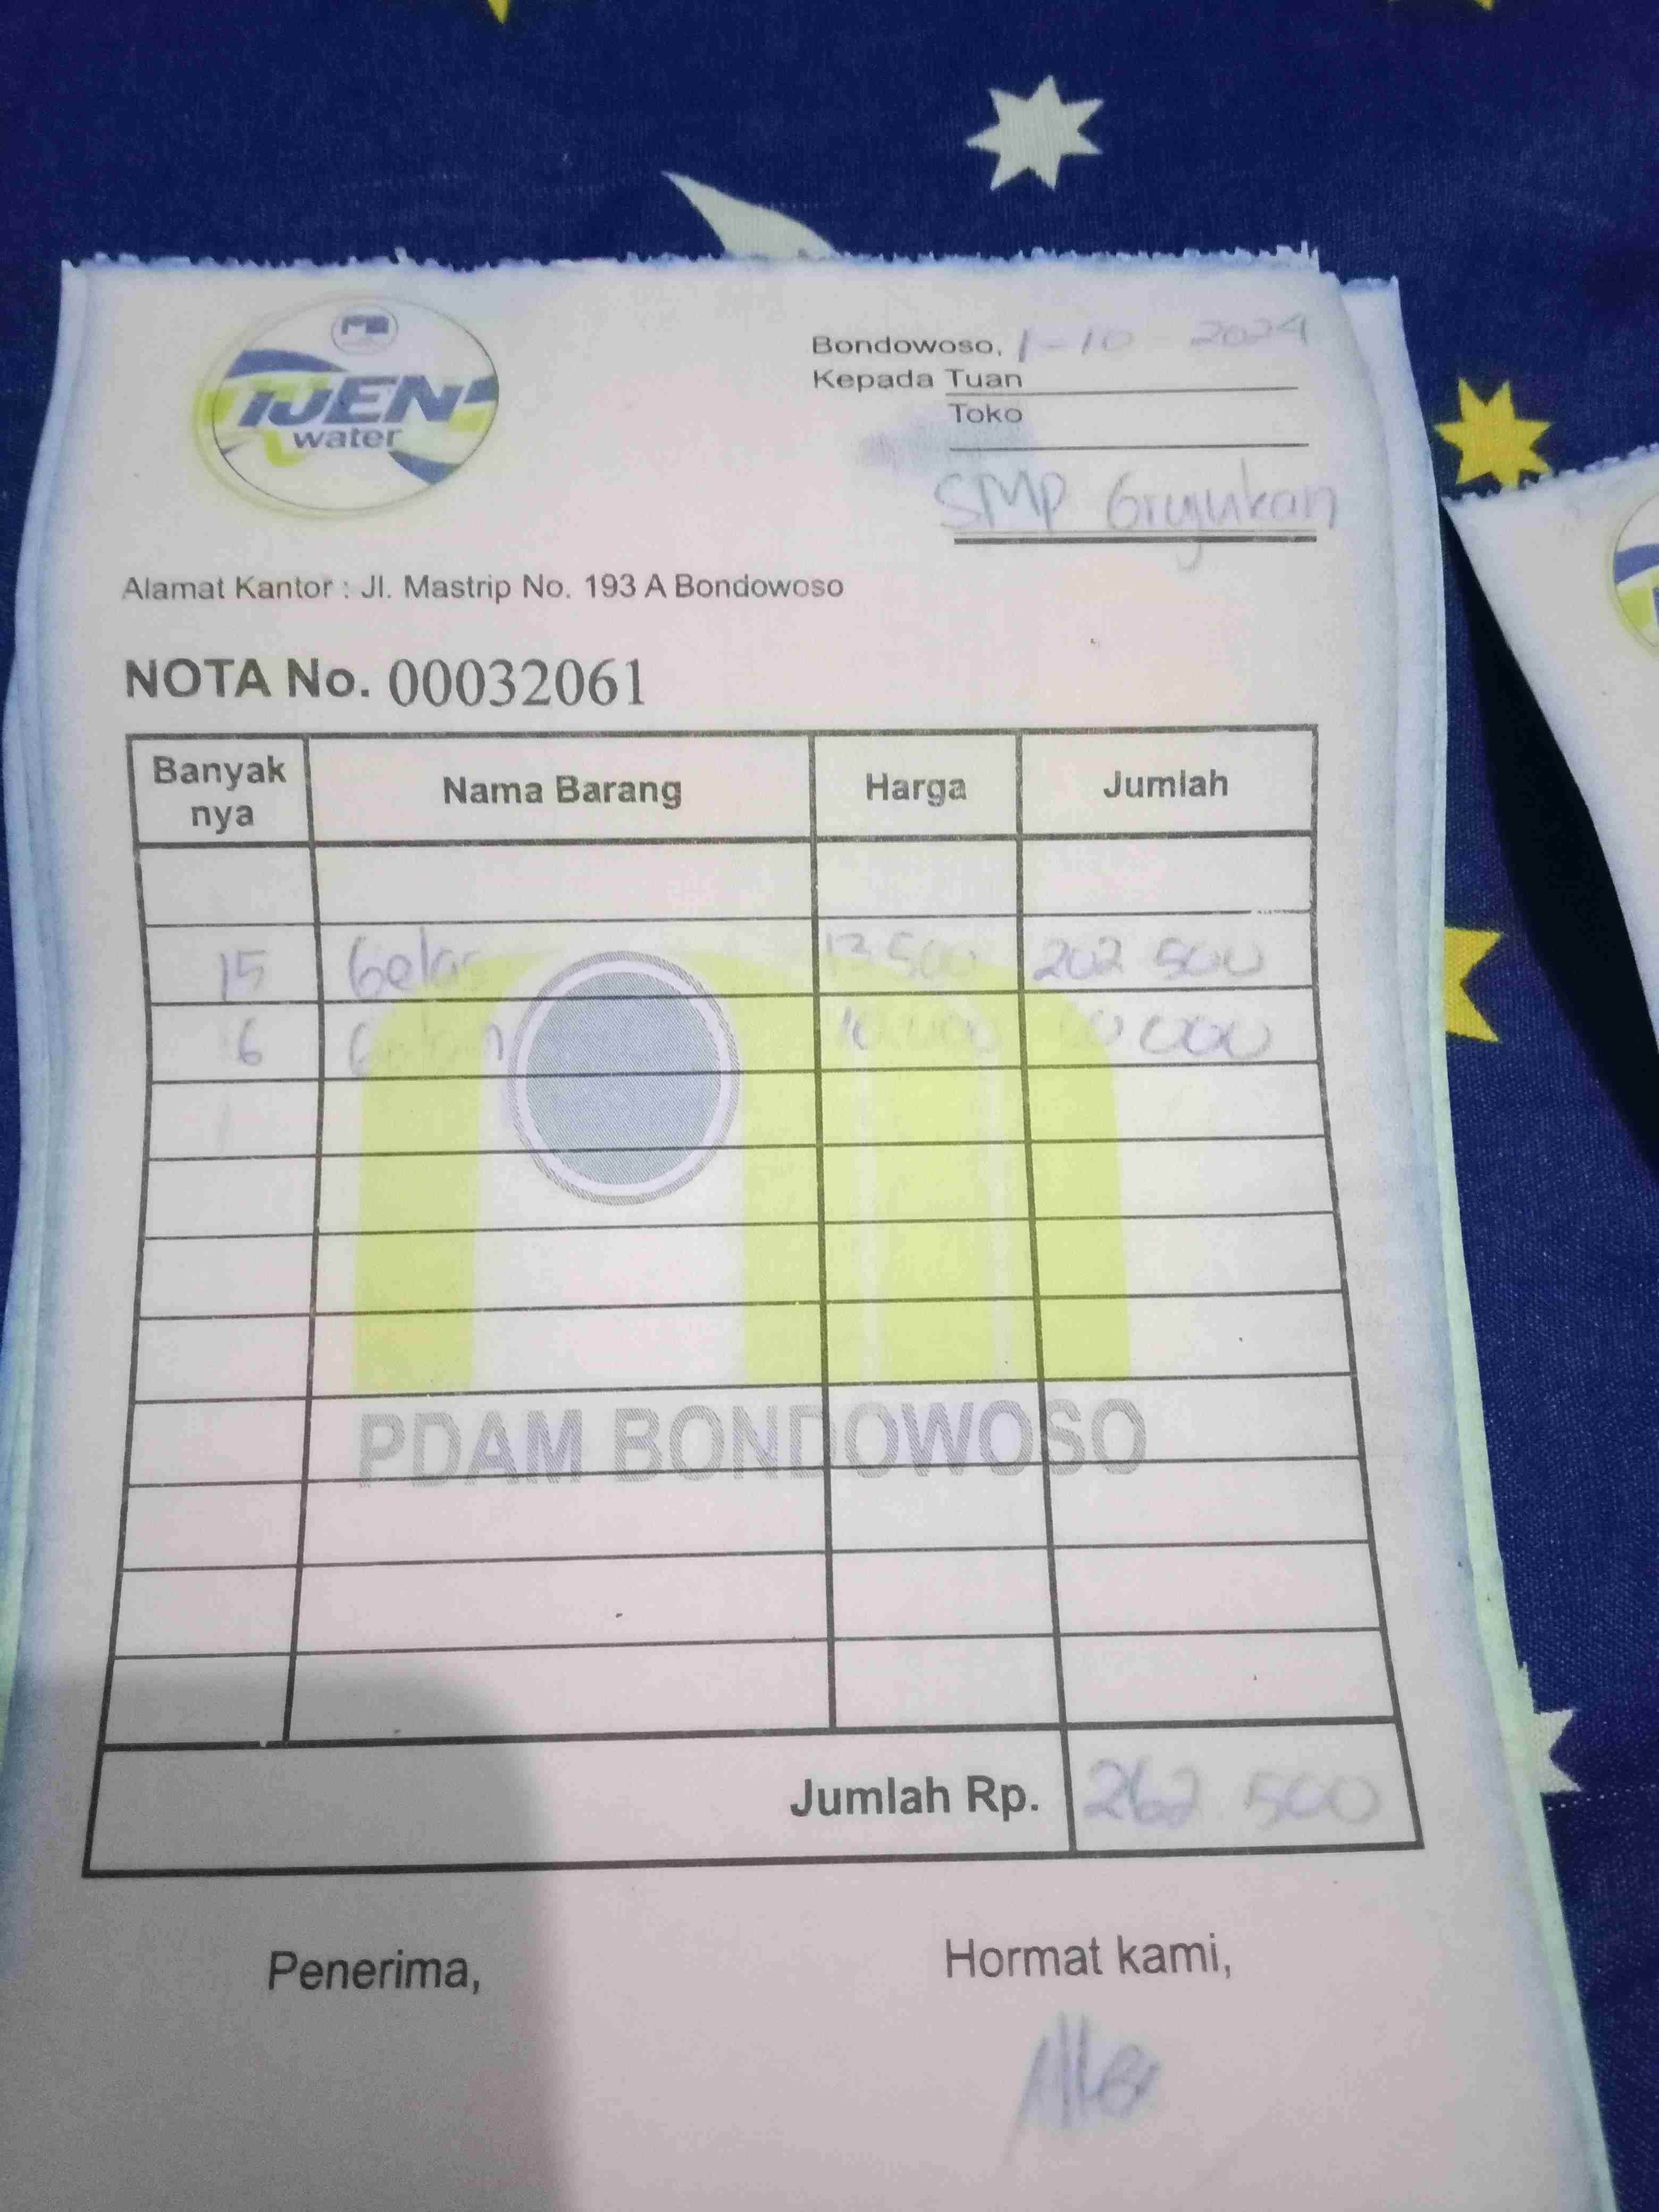 IJEN
water
Bondowoso, 1-10 2024
Kepada Tuan
Toko
SMP Grujukan
Alamat Kantor : Jl. Mastrip No. 193 A Bondowoso
NOTA No. 00032061
Banyak nya Nama Barang Harga Jumlah
15 Gelas 13 500 202 500
6 10.000 60 000
PDAM BONDOWOSO
Jumlah Rp. 262 500
Penerima, Hormat kami,